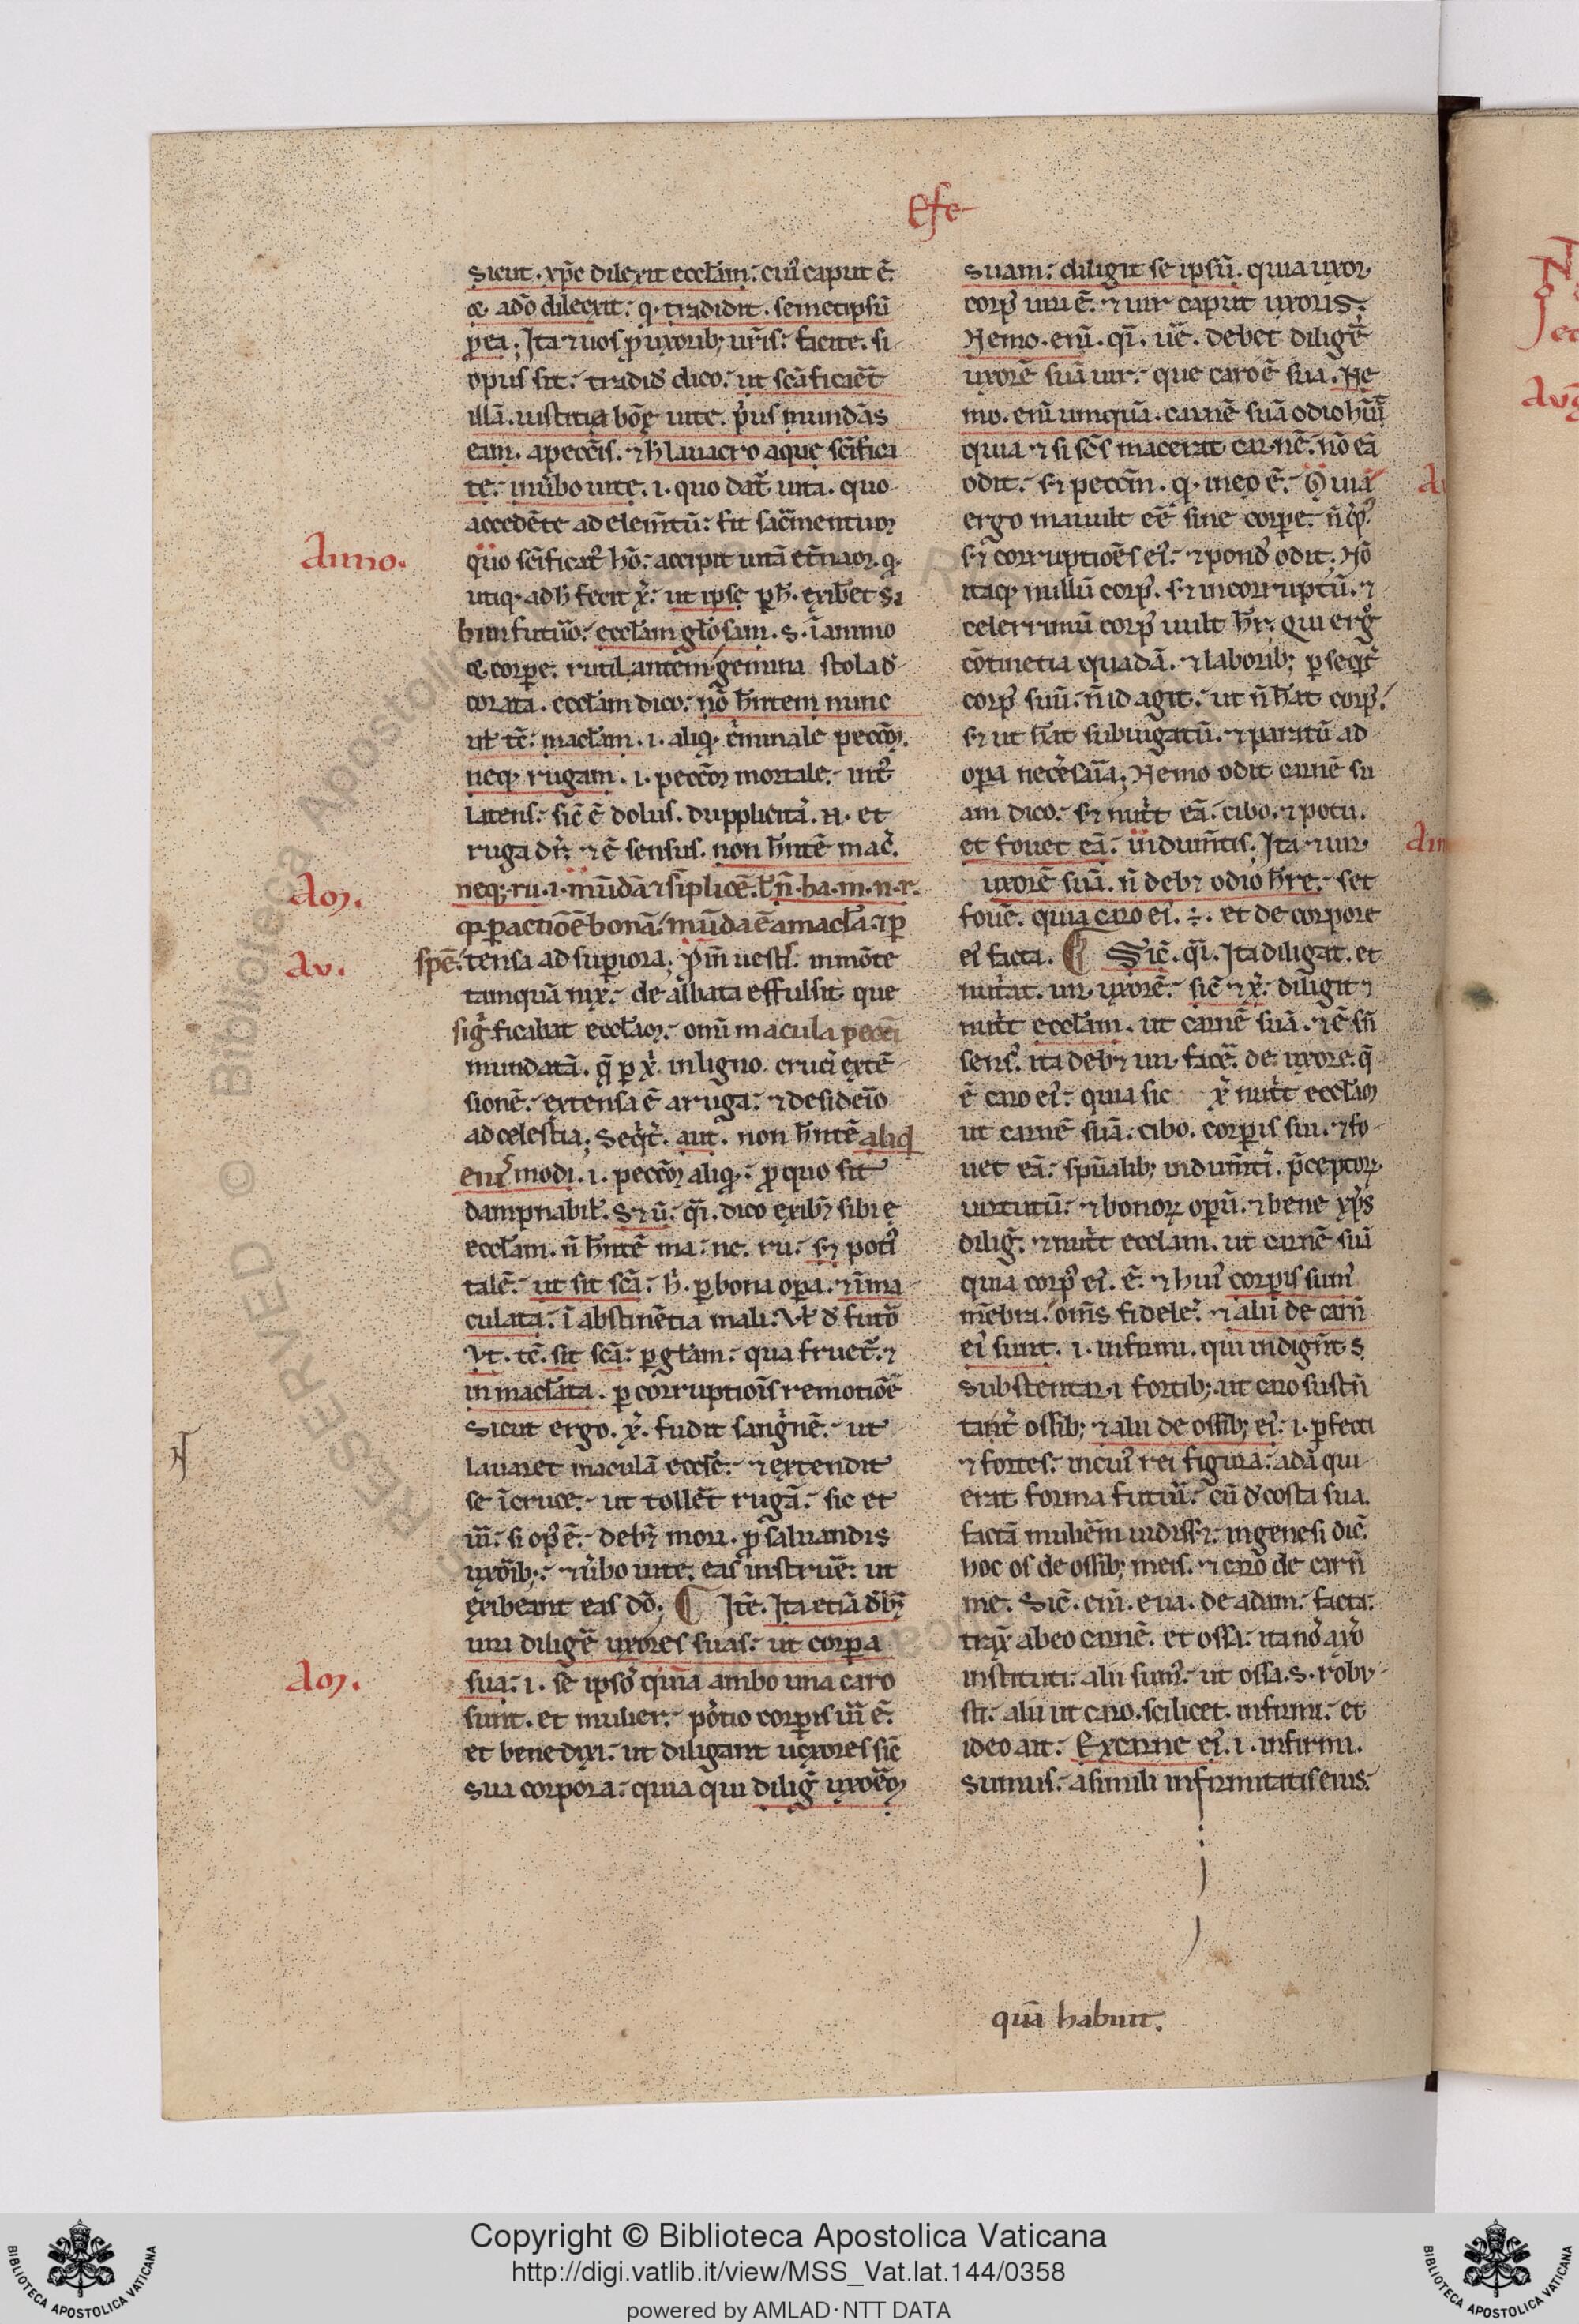 Efe
sicut. xp̃c dilexit eccl̃am: cui᷒ caput ẽ.
p̱ ea; Ita ⁊ uos p̱ uxorib; ur̃is: facite. si
opus sit: tradid̃ dico: ut sc̃aficaret̃
illã. iustitia bõe uite. p̃us mundãs
eam. a pecc̃is. ⁊ h̃ lauacro aque sc̃ifica
te: in ũbo uite. i. quo dat̃ uita. quo
accedẽte ad elem̃tũ: fit sac̃mentum
Anno.
quo sc̃ificat̃ hõ: accipit uitã et̃nam. q.
utiq. ad h̃ fecit x̃: ut ipse p̱ h̃. exibet si
bimi futuro: eccl̃am glõsam. s. ĩ animo
⁊ corpe. rutilantem gemina stola d̃
corata. eccl̃am dico: nõ h̃ntem nunc
ul̃ tc̃: macl̃am. i. aliq. c̃minale pecc̃m.
neq. rugam. i. pecc̃m mortale. int̃
latens: sic̃ ẽ dolus. dupplicitã. N. et
ruga dr̃: ⁊ ẽ sensus. non h̃ntẽ mac̃.
Aom.
neq; ru. i. mũdã ⁊ sĩplicẽ. ul̃ ñ. ha. m. n. r.
q. p̱ actiõẽ bonã: mũda ẽ a macl̃a. ⁊ p̱
Au.
spẽ. tensa ad sup̱iora; p̃m uestĩ. in mõte
tamquã nix. de albata effulsit que
sig̃ficabat eccl̃am. om̃i macula pecc̃i
mundatã. q̃ p̱ x̃. in ligno crucĩ extẽ
sionẽ. extensa ẽ a ruga. ⁊ desideĩo
ad celestia; Seqt̃. aut. non h̃ntẽ aliqd
eius modi. i. pecc̃m aliq. p̱ quo sit
dampnabil̃. S⁊ ũ. q̃i. dico exib⁊ sibi e
eccl̃am. ñ h̃ntẽ ma. ne. ru. s⁊ poti᷒
talẽ. ut sit sc̃ã. h̃. p̱ bona opa. ⁊ ĩma
culata. ĩ abstinẽtia mali. Vl̃ d̃ futõ
Vt. tc̃. sit sc̃ã. p̱ gl̃am. qua fruet̃. ⁊
inmacl̃ata. p̱ corruptiõis remotiõẽ
Sicut ergo. x̃. fudit sang̃nẽ. ut
lauaret maculã eccl̃e. ⁊ extendit
se ĩ cruce. ut tollet̃ rugã. sic et
uĩ. si op᷒ ẽ. deb⁊ mori. p̱ saluandis
uxõib;. ⁊ ũbo uite. eas instruẽ. ut
exibeant eas dõ; ¶ Itẽ. Ita etiã deb⁊
uiri diligẽ uxores suas. ut corpa
Aom.
sua. i. se ipsõ quia ambo una caro
sunt. et mulier. põtio corpis uĩ ẽ.
et bene dixi. ut diligant uxores sic̃
sua corpora. quia qui dilig̃ uxoẽm
suam. diligit se ipsũ. quia uxor
corp᷒ uiri ẽ. ⁊ uir caput uxoris.
Nemo. enĩ. q̃i. uẽ. debet diligẽ
uxorẽ suã uir. que caro ẽ sua. Ne
mo. enĩ umquã. carnẽ suã odio h̃uit
quia ⁊ si sc̃s macerat carnẽ. nõ eã
odit. s⁊ pecc̃m. q. in eo ẽ. Quia
ergo mauult eẽ sine corpe. ñ cp᷒.
s⁊ corruptiões ei᷒. ⁊ pond᷒ odit. Nõ
itaq. nullũ corp᷒. s⁊ incorruptũ. ⁊
celerrimũ corp᷒ uult h̃r̃. Qui ergo
cõtinetia quadã. ⁊ laborib; p̱seqt̃
corp᷒ suũ. ñ id agit. ut ñ h̃at corp᷒.
s⁊ ut h̃at subiugatũ. ⁊ paratũ ad
opa necẽsaria; Nemo odit carnẽ su
am dico. s⁊ nut̃t eã. cibo. ⁊ potu.
et fouet eã. indum̃tis. Ita ⁊ uir
uxorẽ suã. ñ deb⁊ odio h̃re. set
fouẽ. quia caro ei᷒. ÷. et de corpore
ei᷒ facta. ¶ Sic̃. q̃i. Ita diligat. et
nut̃at. uir uxorẽ. sic̃ ⁊ x̃. diligit ⁊
nut̃t eccl̃am. ut carnẽ suã. ⁊ ẽ sñ
sens᷒. ita deb⁊ uir facẽ. de uxore. q̃
ẽ caro ei᷒. quia sic x̃ nut̃t eccl̃am
ut carnẽ suã. cibo. corp̱is sui. ⁊ fo
uet eã. spũalib; indum̃ti. p̃ceptor⁊
uirtutũ. ⁊ bonor⁊ opũ. ⁊ bene xp̃s
dilig̃. ⁊ nut̃t ecclam. ut carnẽ suã
quia corp᷒ ei᷒. ẽ. ⁊ hui᷒ corpis sum᷒
mẽbra. om̃s fidele᷒. ⁊ alii de carñ
ei᷒ sunt. i. infirmi. qui indigñt s
substentari fortib;. ut caro sustñ
tant̃ ossib; ⁊ alii de ossib; ei᷒. i. p̱fecti
⁊ fortes. in cui᷒ rei figura. adã qui
erat forma futuri. cũ d̃ costa sua.
factã muliẽm uidiss⁊. in genesi dic̃.
hoc os de ossib; meis. ⁊ caro de carñ
me. Sic̃. enĩ. eua. de adam. facta.
trax̃ ab eo carnẽ. et ossa. ita nõ a xõ
instituti. alii sum᷒. ut ossa. s. robu
sti. alii ut caro. scilicet. infirmi. et
ideo ait. Ex carne ei᷒. i. infirmi.
sumus. a simili infirmitatis eius.
quã habuit.
Copyright © Biblioteca Apostolica Vaticana
http://digi.vatlib.it/view/MSS_Vat.lat.144/0358
powered by AMLAD·NTT DATA
BIBLIOTECA APOSTOLICA VATICANA
BIBLIOTECA APOSTOLICA VATICANA